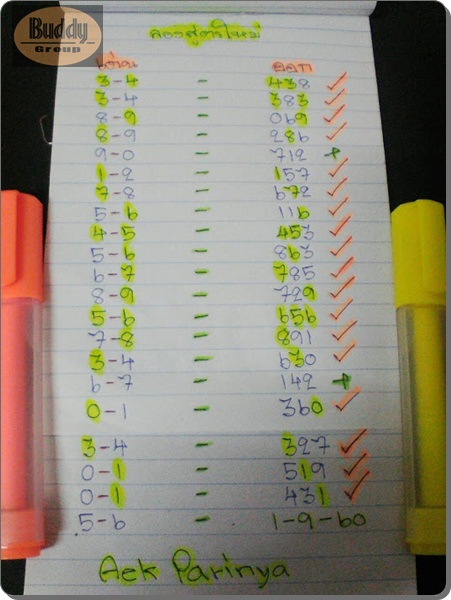 Buddy
Group
ลองสูตรใหม่
เด่น ออก
3-4 - 438 ✓
3-4 - 383 ✓
8-9 - 069 ✓
8-9 - 286 ✓
9-0 - 712 +
1-2 - 157 ✓
7-8 - 672 ✓
5-6 - 116 ✓
4-5 - 453 ✓
5-6 - 863 ✓
6-7 - 785 ✓
8-9 - 729 ✓
5-6 - 656 ✓
7-8 - 891 ✓
3-4 - 630 ✓
6-7 - 142 +
0-1 - 360 ✓
3-4 - 327 ✓
0-1 - 519 ✓
0-1 - 431 ✓
5-6 - 1-9-60
Aek Parinya